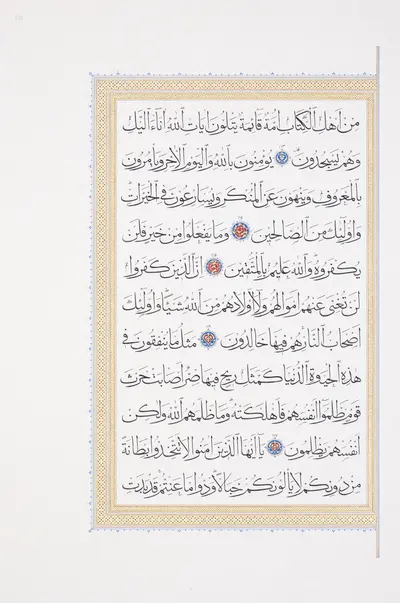 من اهل الكتاب امة قائمة يتلون ايات الله اناء اليل
وهم يسجدون يومنون بالله واليوم الاخر ويامرون
بالمعروف وينهون عن المنكر ويسارعون في الخيرات
واولئك من الصالحين وما يفعلوا من خير فلن
يكفروه والله عليم بالمتقين ان الذين كفروا
لن تغني عنهم اموالهم ولا اولادهم من الله شيئا واولئك
اصحاب النار هم فيها خالدون مثل ما ينفقون في
هذه الحيوة الدنيا كمثل ريح فيها صر اصابت حرث
قوم ظلموا انفسهم فاهلكته وما ظلمهم الله ولكن
انفسهم يظلمون يا ايها الذين امنوا لا تتخذوا بطانة
من دونكم لا يالونكم خبالا ودوا ما عنتم قد بدت